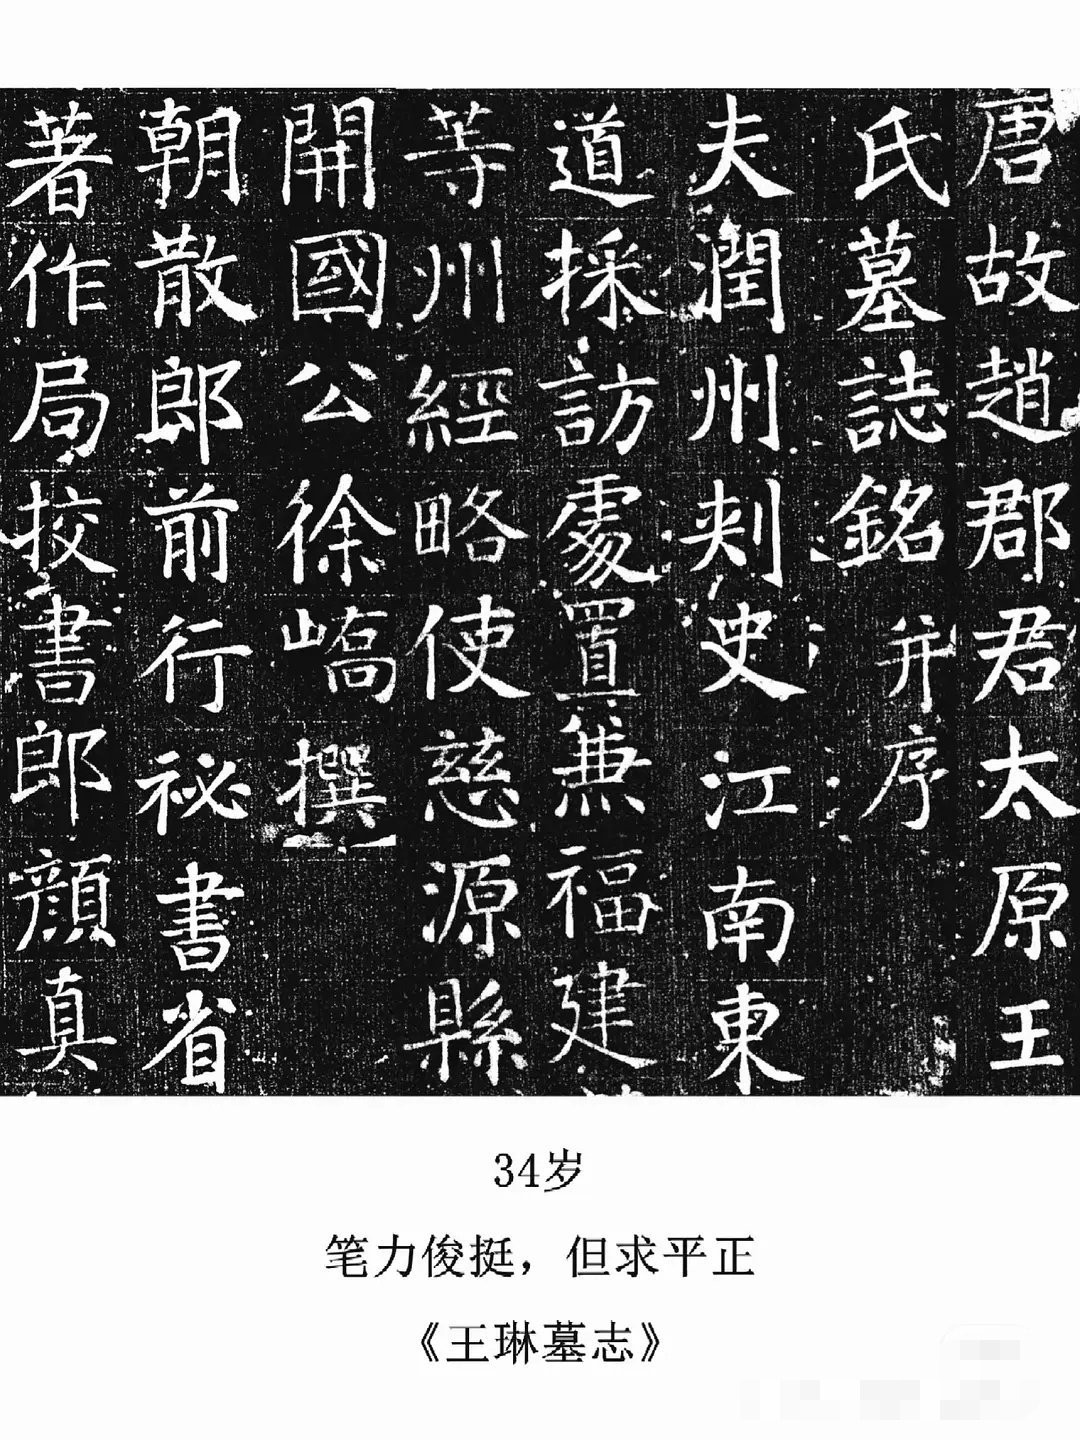 唐故趙郡君太原王
氏墓誌銘并序
夫潤州刾史江南東
道採訪處置兼福建
等州經略使慈源縣
開國公徐嶠撰
朝散郎前行祕書省
著作局挍書郎顔真
34岁
笔力俊挺，但求平正
《王琳墓志》